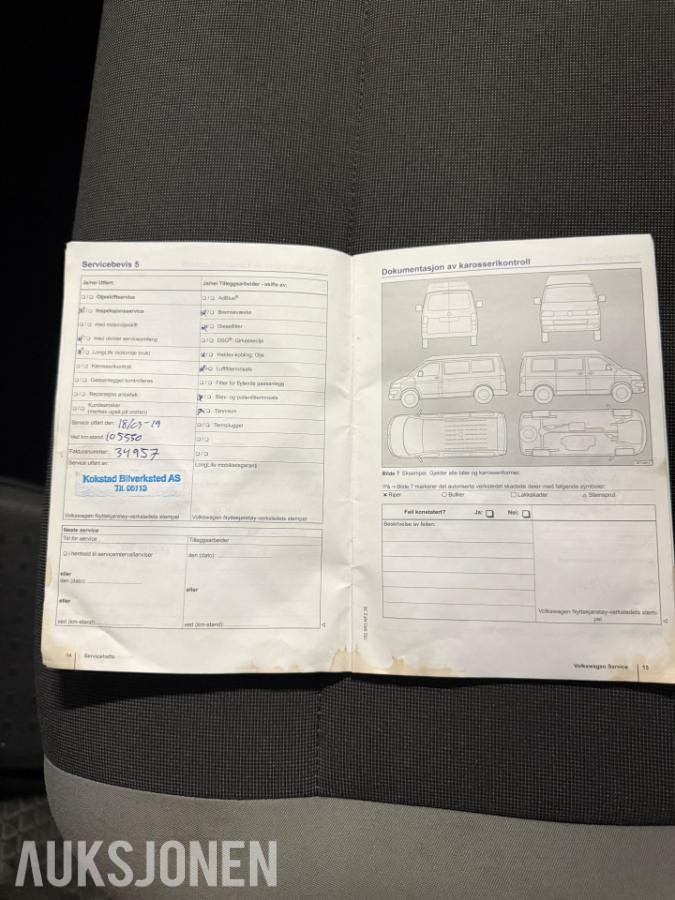 Servicebevis 5
Ja/nei Utført:
Oljeskiftservice
Inspeksjonsservice
med motoroljeskift
med utvidet serviceomfang
LongLife motorolje brukt
Karosserikontroll
Gassanlegget kontrolleres
Reparasjon anbefalt
Kundeønsker
(merkes også på ordren)
Service utført den: 18/03-19
Ved km-stand: 105550
Fakturanummer: 34957
Service utført av:
Kokstad Bilverksted AS
Tlf. 05113
Volkswagen Nyttekjøretøy-verkstedets stempel
Ja/nei Tilleggsarbeider - skifte av:
AdBlue®
Bremsevæske
Dieselfilter
DSG®: Girkasseolje
Haldex-kobling: Olje
Luftfilterinnsats
Filter for flytende gassanlegg
Støv- og pollenfilterinnsats
Tannreim
Tennplugger
LongLife mobilitetsgaranti
Volkswagen Nyttekjøretøy-verkstedets stempel
Neste service
Tid for service
I henhold til serviceintervallanviser
eller
den (dato):
eller
ved (km-stand):
Tilleggsarbeider
den (dato):
eller
ved (km-stand):
14 Servicehefte
Dokumentasjon av karosserikontroll
Bilde 7 Eksempel: Gjelder alle biler og karosseriformer.
På ⇒ Bilde 7 markerer det autoriserte verkstedet skadede deler med følgende symboler:
× Riper ○ Bulker □ Lakkskader △ Steinsprut
Feil konstatert? Ja: Nei:
Beskrivelse av feilen:
Volkswagen Nyttekjøretøy-verkstedets stem-
pel
Volkswagen Service 15
AUKSJONEN